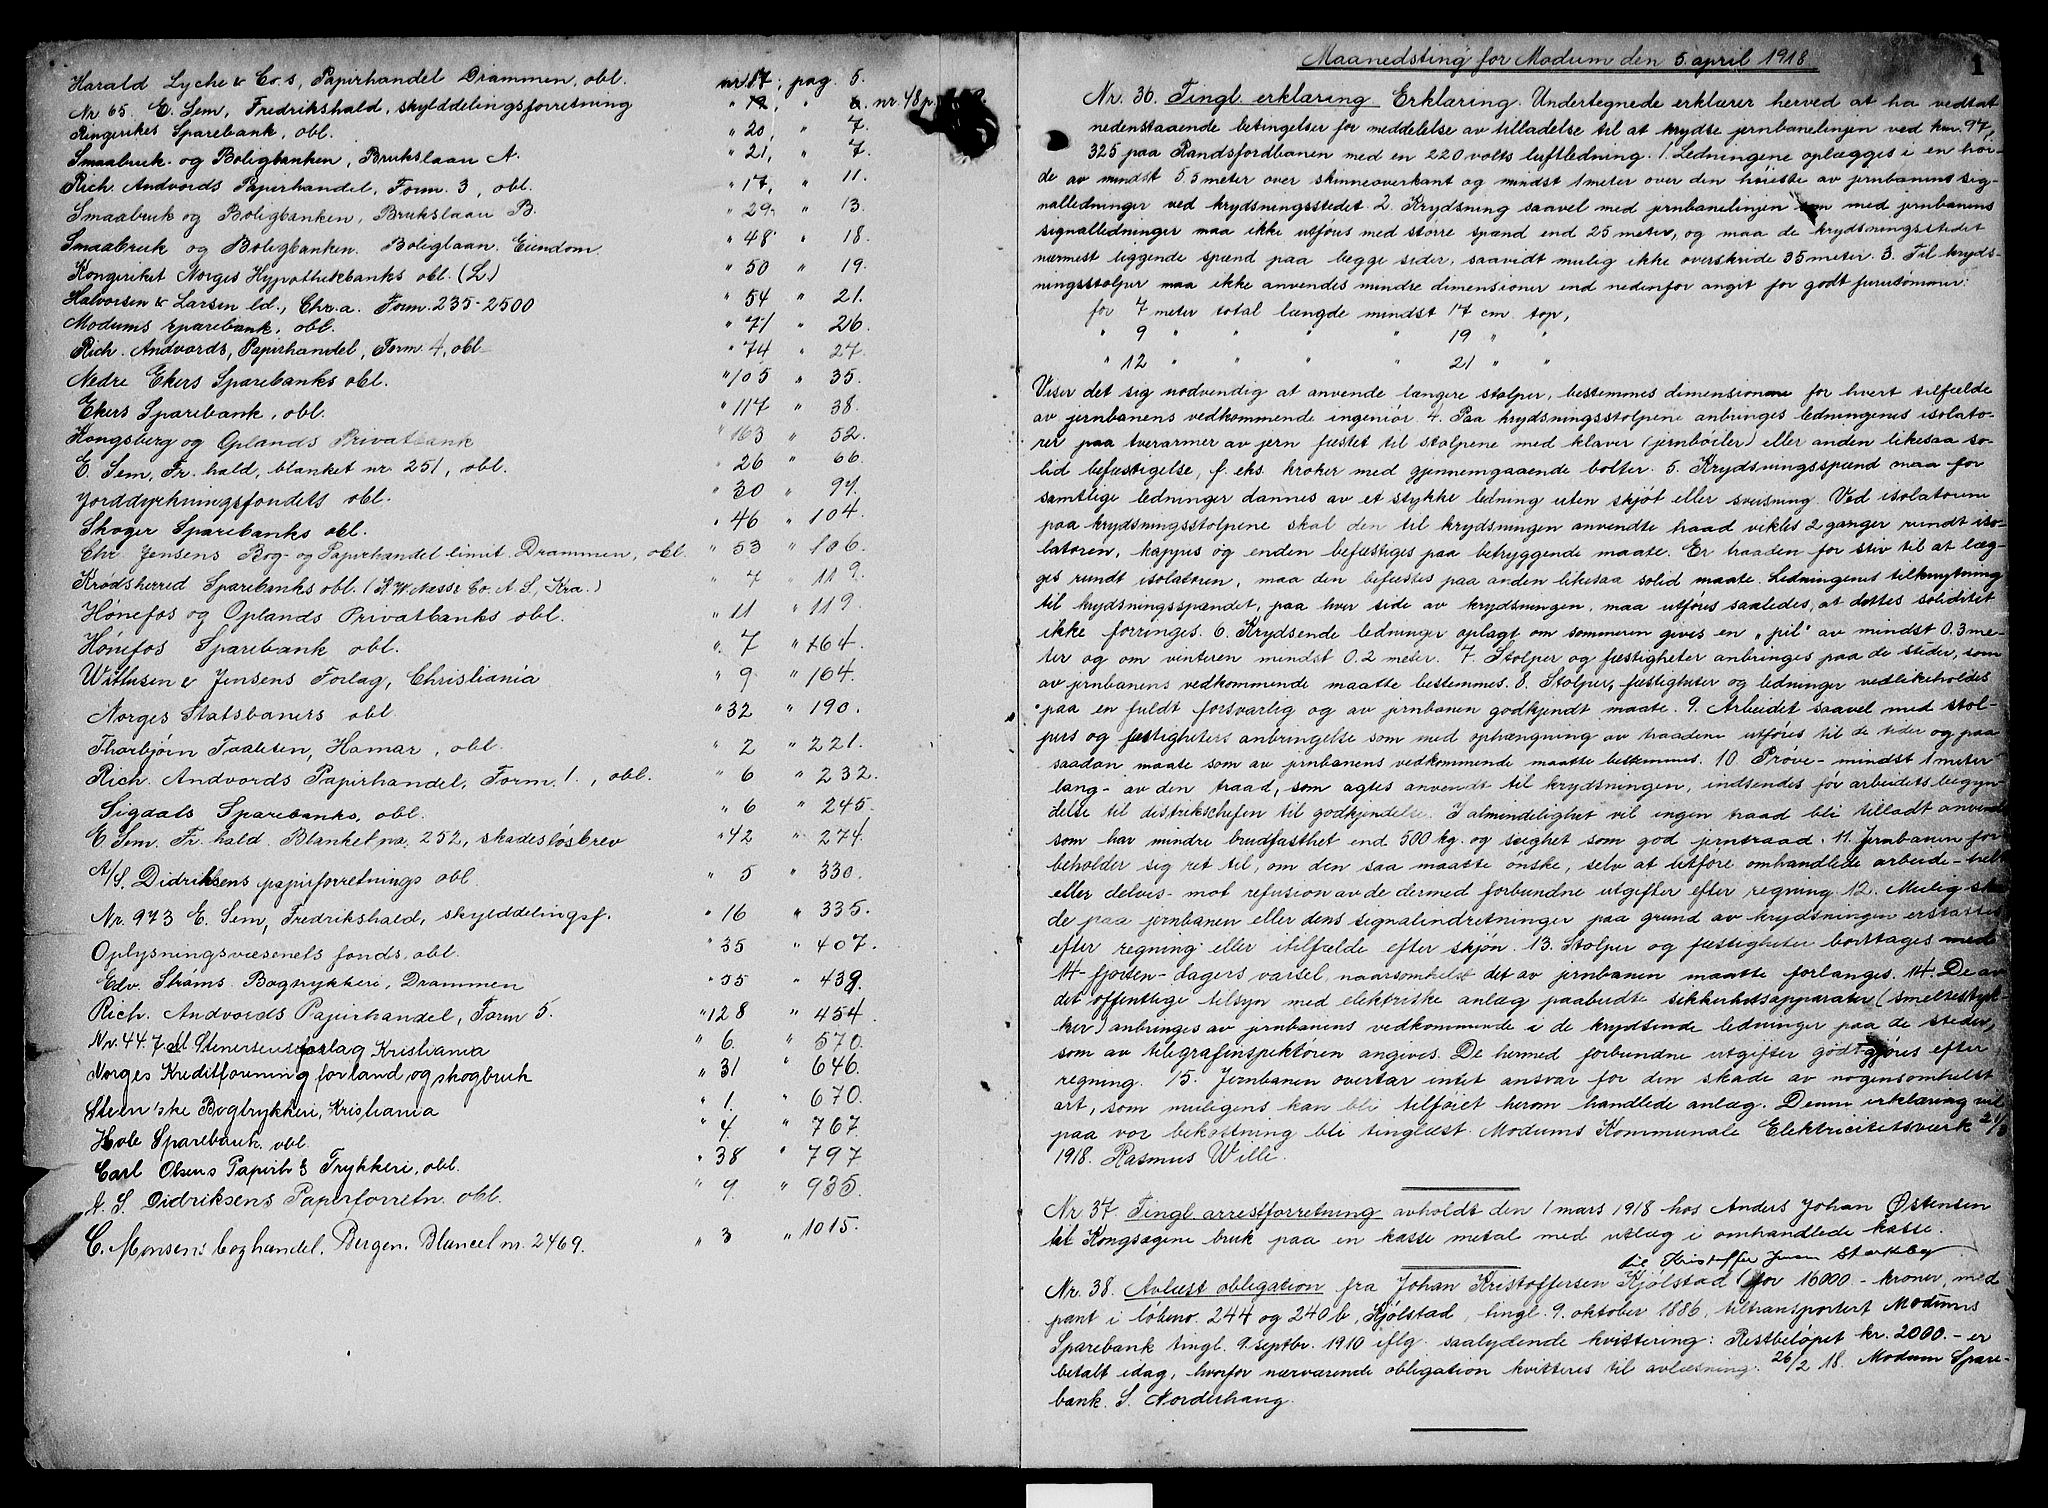 Harald Lyche & Co.s, Papirhandel Drammen, obl. nr. 17, pag. 5.
Nr. 65. E. Sem, Fredrikshald, skylddelingsforretning " 19, " 6. nr. 48 p.
Ringerikes Sparebank, obl. " 20, " 7.
Smaabruk- og Boligbanken, Brukslaan A. " 21, " 7.
Rich. Andvords Papirhandel, Form. 3, obl. " 17, " 11.
Smaabruk og Boligbanken, Brukslaan B. " 29 " 13.
Smaabruk og Boligbanken. Boliglaan. Eiendom. " 48 " 18.
Kongeriket Norges Hypothekbanks obl. (L.) " 50 " 19.
Halvorsen & Larsen ld., Chr.a. Form. 235-2500 " 54 " 21.
Modums Sparebank, obl. " 71 " 26.
Rich. Andvords, Papirhandel, Form. 4, obl. " 74 " 27.
Nedre Ekers Sparebanks obl. " 105 " 35.
Ekers Sparebank, obl. " 117 " 38.
Kongsberg og Oplands Privatbank " 163 " 52.
E. Sem, Fr. hald, blanket nr. 251, obl. " 26 " 66.
Jorddyrkningsfondets obl. " 30 " 97.
Skoger Sparebanks obl. " 46 " 104.
Chr. Jensens Bog- og Papirhandel limit. Drammen, obl. " 53 " 106.
Krødsherred Sparebanks obl. (A. W. Næss & Co. A. S., Kra.) " 7 " 119.
Hönefos og Oplands Privatbanks obl. " 11 " 119.
Hönefos Sparebank obl. " 7 " 164.
Wittusen & Jensens Forlag, Christiania " 9 " 164.
Norges Statsbaners obl. " 32 " 190.
Thorbjörn Taalesen, Hamar, obl. " 2 " 221.
Rich. Andvords Papirhandel, Form. 1., obl. " 6 " 232.
Sigdals Sparebanks, obl. " 6 " 245.
E. Sem. Fr. hald. Blanket no. 252, skadeslösbrev " 42 " 274.
A/S. Didriksens papirforretnings obl. " 5 " 330.
Nr. 973 E. Sem, Fredrikshald, skylddelingsf. " 16 " 335.
Oplysningsvæsenets fonds, obl. " 35 " 407.
Edv. Ströms Bogtrykkeri, Drammen " 35 " 439.
Rich. Andvords Papirhandel, Form 5. " 128 " 454.
Nr. 44. 7de M. Stenersens forlag Kristiania " 6. " 570.
Norges Kreditforening for land og skogbruk " 31 " 646.
Steen'ske Bogtrykkeri, Kristiania " 1. " 670.
Hole Sparebank obl. " 4. " 767.
Carl Olsens Papirh & Trykkeri, obl. " 38 " 797
A. S. Didriksens Papirforretn. obl. " 9. " 935.
C. Monsens boghandel. Bergen. Blancet nr. 2469. " 3 " 1015.
1
Maanedsting for Modum den 5. april 1918.
Nr. 36. Tingl. erklæring Erklæring. Undertegnede erklærer herved at ha vedtat
nedenstaaende betingelser for meddelelse av tilladelse til at krydse jernbanelinjen ved km. 97,
325 paa Randsfjordbanen med en 220 volts luftledning. 1. Ledningene oplægges i en høi-
de av mindst 5.5 meter over skinneoverkant og mindst 1 meter over den høieste av jernbanens sig-
nalledninger ved krydsningsstedet. 2. Krydsning saavel med jernbanelinjen som med jernbanens
signalledninger maa ikke utføres med större spænd end 25 meter, og maa de krydsningsstedet
nærmest liggende spænd paa begge sider, saavidt mulig ikke overskride 35 meter. 3. Til kryds-
ningsstolper maa ikke anvendes mindre dimensioner end nedenfor angit for godt furutömmer:
for 7 meter total længde mindst 17 cm. top,
" 9 " " " " 19 " "
" 12 " " " " 21 " "
Viser det sig nødvendig at anvende længere stolper, bestemmes dimensionene for hvert tilfælde
av jernbanens vedkommende ingeniör. 4. Paa krydsningsstolpene anbringes ledningenes isolato-
rer paa tverarmer av jern fæstet til stolpene med klaver (jernbøiler) eller anden likesaa so-
lid befæstigelse, f. eks. kroker med gjennemgaaende bolter. 5. Krydsningsspænd maa for
samtlige ledninger dannes av et stykke ledning uten skjöt eller sveisning. Ved isolatorene
paa krydsningsstolpene skal den til krydsningen anvendte traad vikles 2 ganger rundt iso-
latoren, kappes og enden befæstiges paa betryggende maate. Er traaden for stiv til at læg-
ges rundt isolatoren, maa den befæstes paa anden likesaa solid maate. Ledningenes tilknytning
til krydsningsspændet, paa hver side av krydsningen, maa utföres saaledes, at dettes soliditet
ikke forringes. 6. Krydsende ledninger oplagt om sommeren gives en "pil" av mindst 0.3 me-
ter og om vinteren mindst 0.2 meter. 7. Stolper og fæstigheter anbringes paa de steder, som
av jernbanens vedkommende maatte bestemmes. 8. Stolper, fæstigheter og ledninger vedlikeholdes
paa en fuldt forsvarlig og av jernbanen godkjendt maate. 9. Arbeidet saavel med stol-
pers og fæstigheters anbringelse som med ophængning av traadene utföres til de tider og paa
saadan maate som av jernbanens vedkommende maatte bestemmes. 10. Pröve - mindst 1 meter
lang - av den traad, som agtes anvendt til krydsningen, indsendes för arbeidets begyn-
delse til distriktschefen til godkjendelse. I almindelighet vil ingen traad bli tilladt anvendt
som har mindre brudfasthet end 500 kg. og seighet som god jerntraad. 11. Jernbanen for-
beholder sig ret til, om den saa maatte önske, selv at utföre omhandlede arbeide - helt
eller delvis - mot refusion av de dermed forbundne utgifter efter regning. 12. Mulig ska-
de paa jernbanen eller dens signalindretninger paa grund av krydsningen erstattes
efter regning eller i tilfælde efter skjön. 13. Stolper og fæstigheter borttages med
14 - fjorten - dagers varsel, naarsomhelst det av jernbanen maatte forlanges. 14. De av
det offentlige tilsyn med elektriske anlæg paabudte sikkerhetsapparater (smeltestyk-
ker) anbringes av jernbanens vedkommende i de krydsende ledninger paa de steder,
som av telegrafinspektören angives. De hermed forbundne utgifter godtgjöres efter
regning. 15. Jernbanen overtar intet ansvar for den skade av nogensomhelst
art, som muligens kan bli tilföiet herom handlede anlæg. Denne erklæring vil
paa vor bekostning bli tinglæst. Modums Kommunale Elektricitetsverk 21/3
1918. Rasmus Willi.
Nr. 37. Tingl. arrestforretning avholdt den 1 mars 1918 hos Anders Johan Østensen
til Kongsagene bruk paa en kasse metal med utlæg i omhandlede kasse.
til Kristoffer Jensen
Nr. 38. Avlæst obligation fra Johan Kristoffersen Kjölstad for 16000 - kroner, med
pant i löbenr. 244 og 240b, Kjölstad, tingl. 9. oktober 1886, tiltransportert Modums
Sparebank tingl. 9. septbr. 1910 iflg. saalydende kvittering: Restbelöpet kr. 2000. - er
betalt idag, hvorfor nærværende obligation kvitteres til avlæsning. 26/2 18. Modum Spare-
bank. S. Norderhaug.